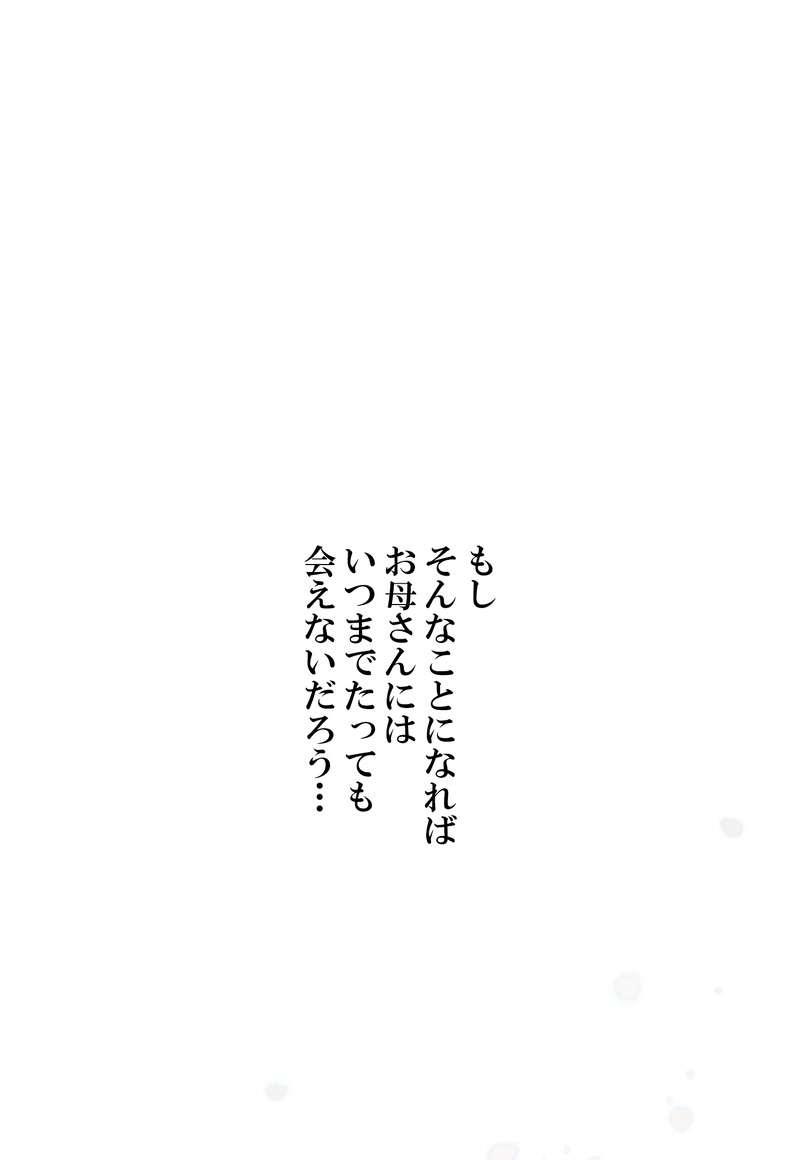 もし
そんなことになれば
お母さんには
いつまでたっても
会えないだろう…